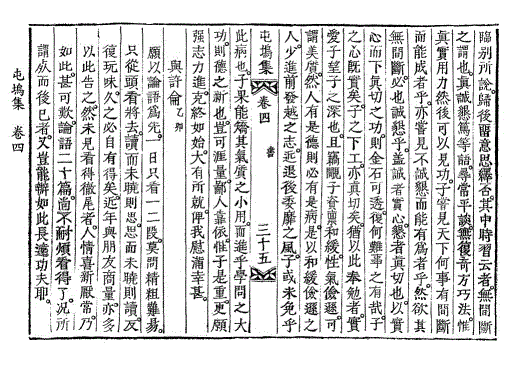 臨別所說歸後留意思繹否其中時習云者無間斷
之謂也真誠懇篤等語尋常平談無復奇方巧法惟
真實用力然後可以見功子嘗見天下何事有間斷
而能成者乎亦嘗見不誠懇而能有爲者乎然欲其
無間斷必也誠懇乎蓋誠者實心懇者真切也以實
心而下真切之功則金石可透復何難事之有哉子
之心旣實矣子之下工亦真切矣猶以此奉勉者實
愛子望子之深也且竊覸子資稟和緩性氣儉遜可
謂美質然人有是德則必有是病是以和緩儉遜之
人少進前發越之志近退後委靡之風子或未免乎
屯塢集 卷四 書 三十五
此病也子果能矯其氣質之小用而進乎學問之大
功則德之新也豈可涯量鄙人靠依惟子是重更願
强志力進克終如始大有所就俾我慰滿幸甚
與許倫 乙卯
願以論語爲先一日只看一二段莫問精粗難易
只從頭看將去讀而未曉則思思而未曉則讀反
復玩味久之必自有得矣近年與朋友商量亦多
以此告之然未見看得徹尾者人情喜新厭常乃
如此甚可歎論語二十篇尚不耐煩看得了况所
謂死而後已者又豈能辦如此長遠功夫耶
屯塢集 卷四